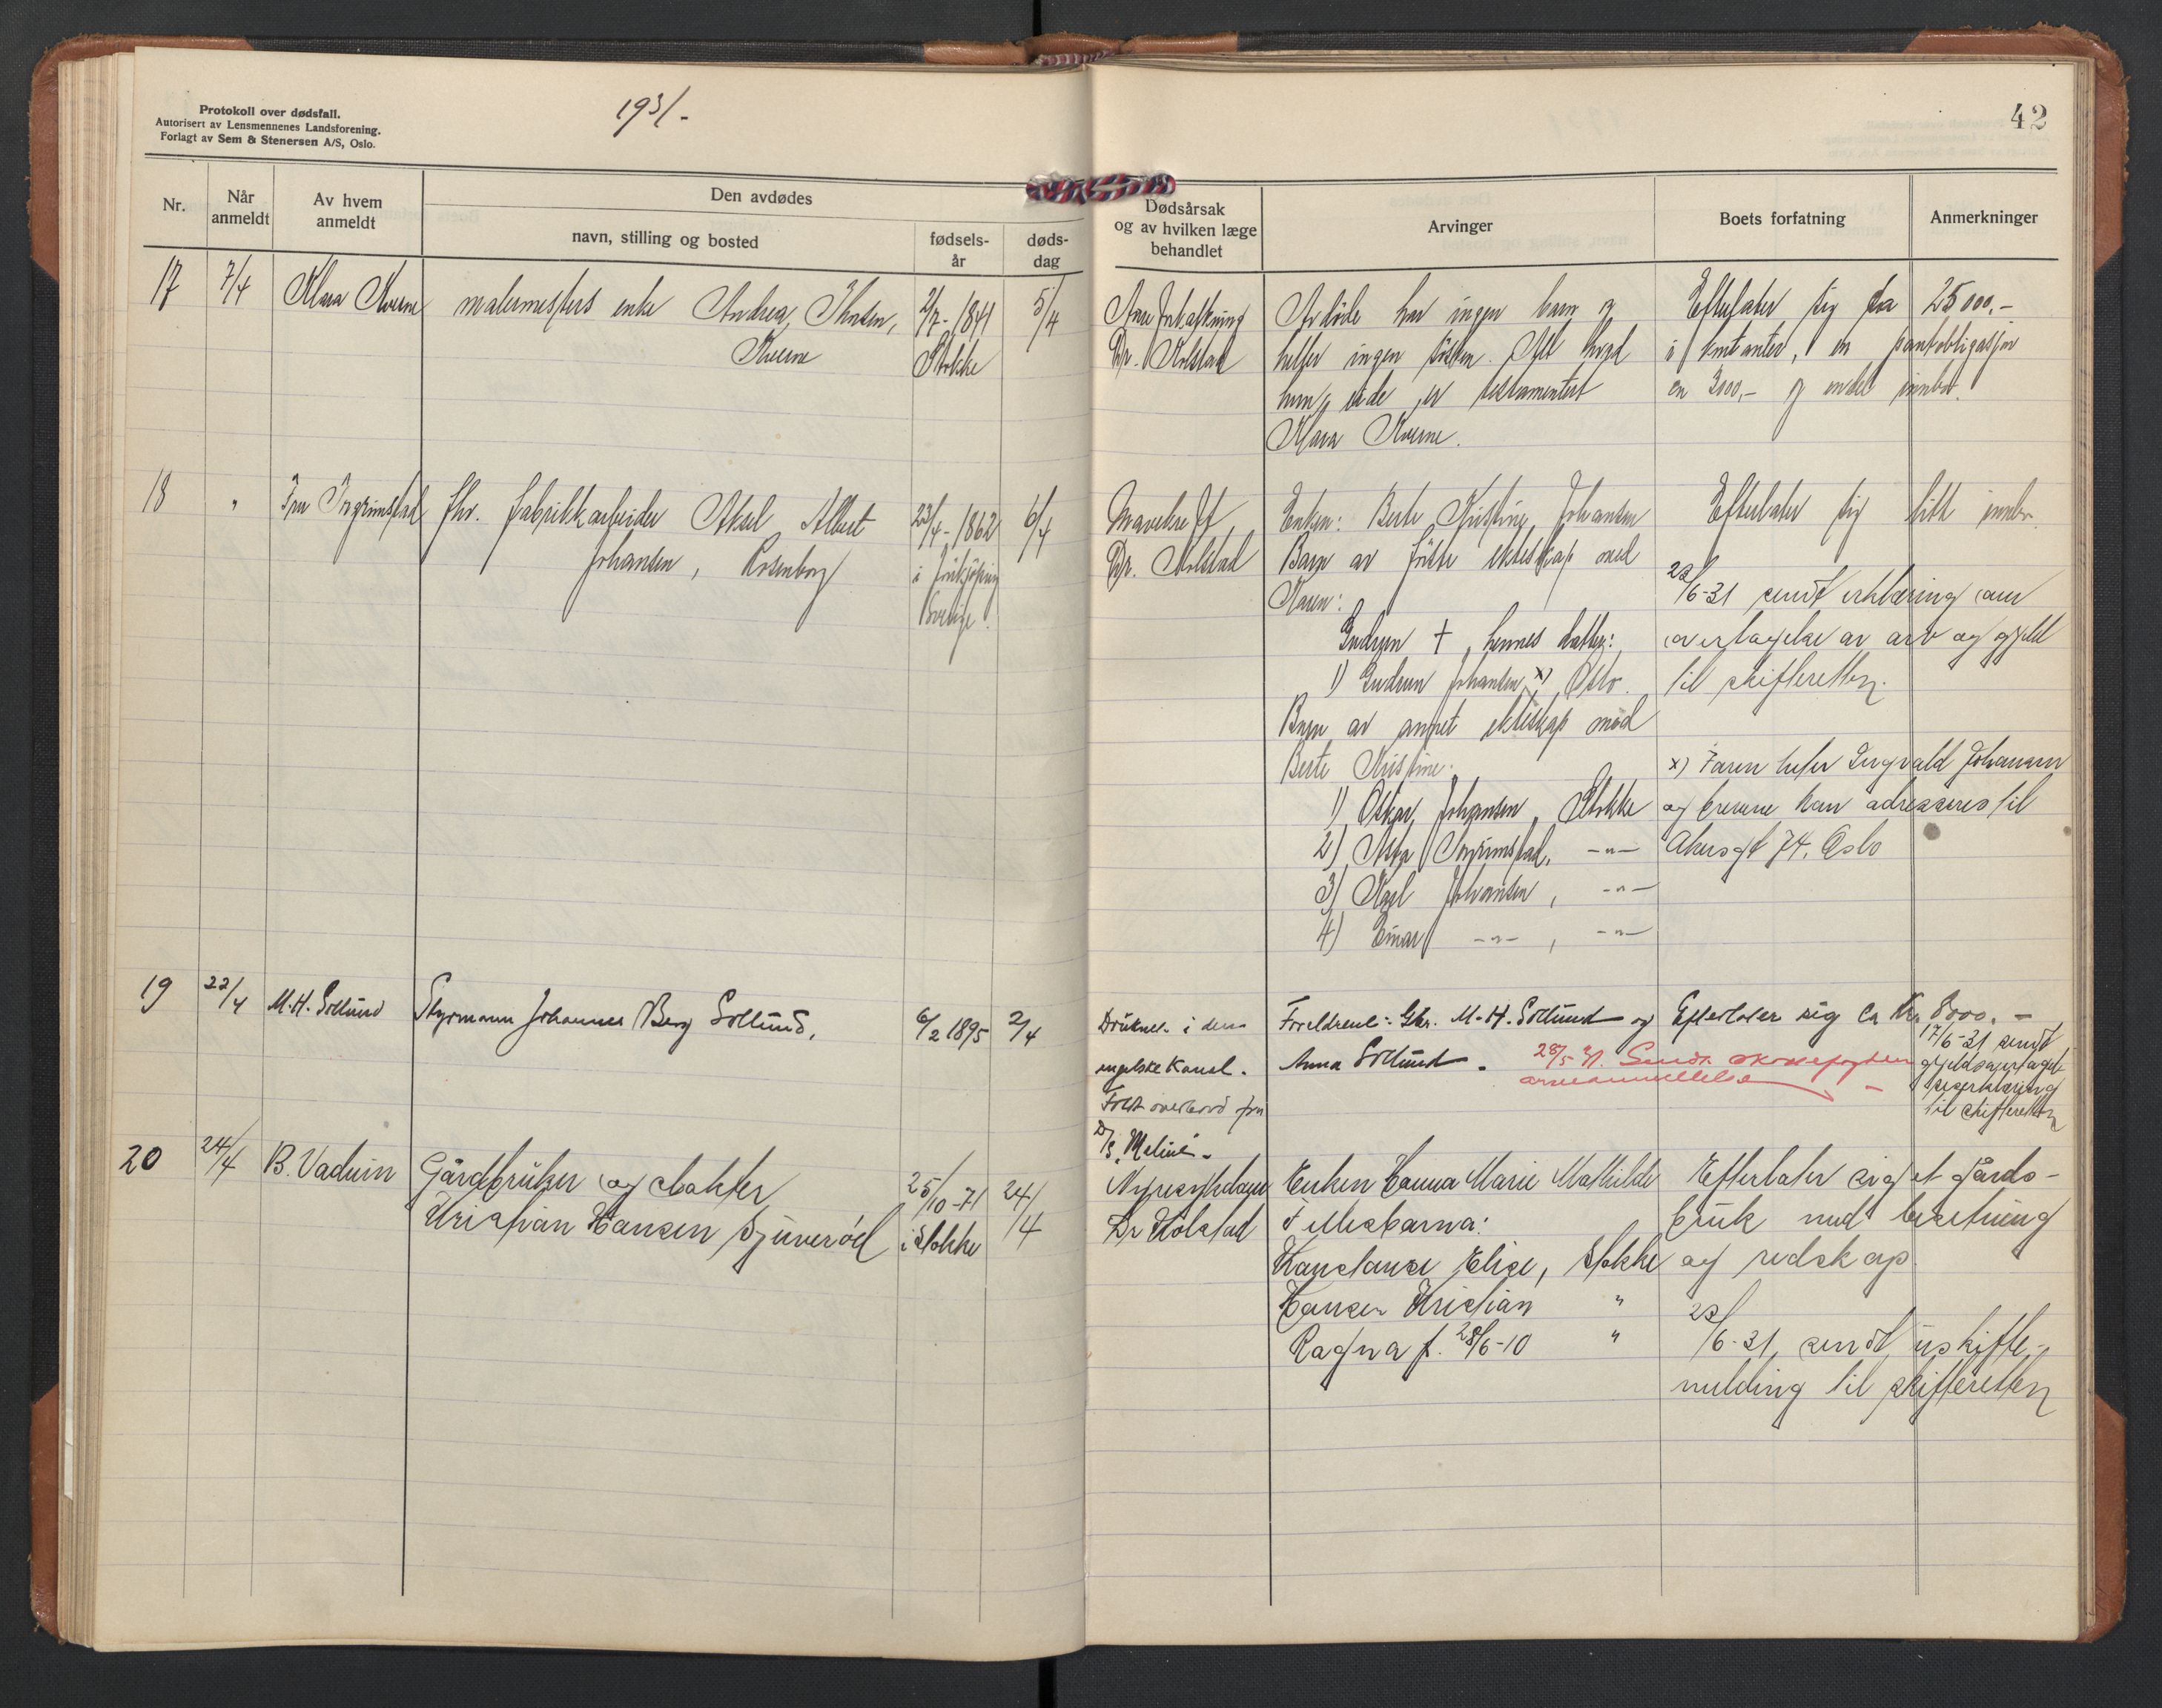 Protokoll over dødsfall.
Autorisert av Lensmennenes Landsforening.
Forlagt av Sem & Stenersen A/S, Oslo.
1931.-
42
Nr.
Når anmeldt
Av hvem anmeldt
Den avdødes
navn, stilling og bosted
fødsels-år
døds-dag
Dødsårsak og av hvilken læge behandlet
Arvinger
Boets forfatning
Anmerkninger
17
7/4
Klara Kverne
malermesters enke Andrea
Kverne
2/7-1841
Stokke
5/4
Dr. Kolstad
Avdöde har ingen barn og
heller ingen söken. Alt hvad
hun eide er testamentert
Klara Kverne.
Efterlater sig ca 25000,-
i kontanter, en pantobligasjon
en 3000,- og endel innbo.
18
"
Fru Ingrimstad
fhv. fabrikkarbeider Aksel Albert
Johansen, Rosenborg
23/4-1862
i Jönkjöping
Sverige.
6/4
Mavekreft,
Dr. Kolstad
Enken: Berte Kristine Johansen
Barn av förste ekteskap med
Karen:
Gudrun †, hennes datter:
1) Gudrun Johansen x) Oslo.
Barn av annet ekteskap med
Berte Kristine.
1) Oskar Johansen, Stokke
2) Asta Ingrimstad, -"-
3) Karl Johansen, -"-
4) Einar -"-, -"-
Efterlater sig litt innbo.
22/6-31 sendt erklæring om
overtagelse av arv og gjeld
til skifteretten.
x) Faren heter Ingvald Johansen
og brevene kan adresseres til
Akersgt 74. Oslo
19
22/4
M.H. Sollund
Styrmann Johannes Berg Sollund,
6/2 1895
2/4
Druknet i den
engelske Kanal.
Falt overbord fra
D/S "Meline"-
Foreldrene: Gbr. M.H. Sollund og
Anna Sollund.
28/5 31. Sendt
Efterlater sig ca Kr. 8000.-
17/6-31 sendt
til skifteretten
20
24/4
B. Vaduin
Gårdbruker og slakter
Kristian Hansen Djuveröd
25/10-71
i Stokke
24/4
Nyresykdom
Dr Kolstad
Enken Hanna Marie Mathilde
Fellesbarna:
Konstanse Elise, Stokke
Hansen Kristian "
Ragna f. 28/6-10 "
Efterlater sig et gårds-
bruk med besetning
og redskap
22/6-31, sendt uskifte-
melding til skifteretten